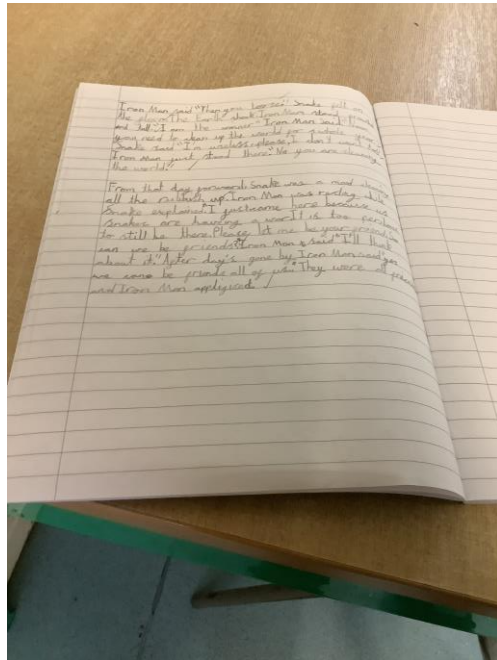 Iron Man said "Then you loose." Snake fell
the floor. The Earth shook Iron Man stand
and tall "I am the winner" Iron Man said
you need to clean up the world for a whole year
Snake said "I'm useless please, I don't want to
Iron Man just stood there "No you are cleaning
the world."
From that day forward, Snake was a mad
all the rubbish up. Iron Man was reading while
Snake explained. I just came here because us
Snakes are having a war. It is too
to still be there. Please let me be your friend
can we be friends" Iron Man said "I'll think
about it." After day's gone by Iron Man said
we can be friends all of us." They were all
and Iron Man